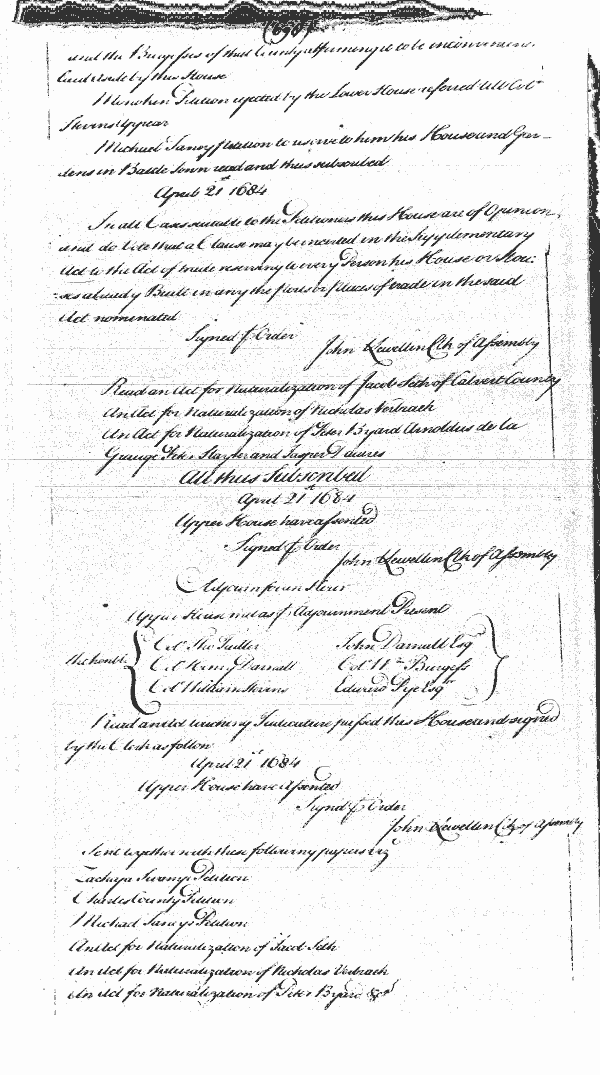 and the Burgesses of that County affirming it to be inconvenient
laid aside by this House
Petition rejected by the Lower House referred till Col:
Stevens appear
Michael petition to him his House and Gar-
dens in Battle Town read and thus subscribed
April 21st 1684
In all Cases suitable to the Petitioners this House are of Opinion,
and do Vote that a Clause may be inserted in the Supplementary
Act to the Act of trade reserving to every Person his House or Hou:
ses already Built in any the ports or places of trade in the said
Act nominated
Signed p Order
John Llewellin Clk of Assembly
Read an Act for Naturalization of Jacob Seth of Calvert County
An Act for Naturalization of Nicholas Verbrach
An Act for Naturalization of Peter Byard Arnoldus de la
Grange Peter Slayter and Jasper Daures
All thus Subscribed
April 21st 1684
Upper House have assented
Signed p Order
John Llewellin Clk of Assembly
Adjourn for an Hour
Upper House met as p Adjournment Present
The honble: { Col: Tho: Tailler John Darnall Esq }
Col: Henry Darnall Col: Wm Burgess
Col: William Stevens Edward Pye Esqr
Read an Act touching Judicature passed this House and signed
by the Clerk as follow
April 21st 1684
Upper House have Assented
Signed p Order
John Llewellin Clk of Assembly
Sent together with these following papers viz
Petition
Charles County Petition
Michael Petition
An Act for Naturalization of Jacob Seth
An Act for Naturalization of Nicholas Verbrach
An Act for Naturalization of Peter Byard &c